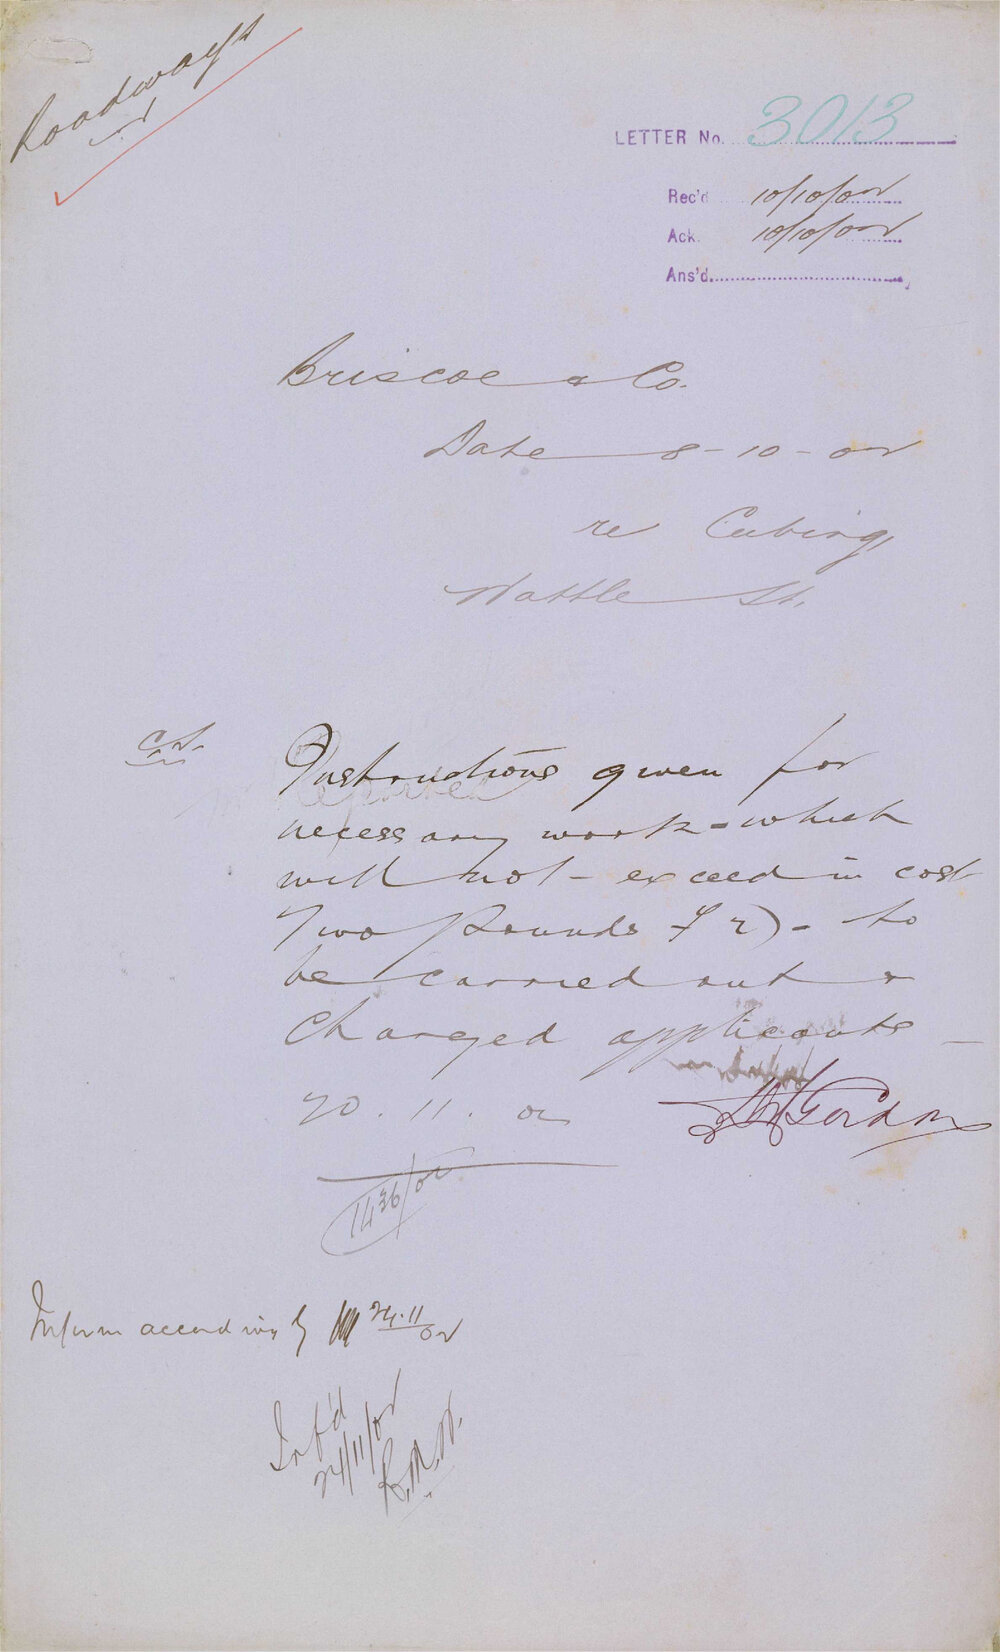 Roadways
LETTER No. 3013
Rec'd 10/10/02
Ack. 10/10/02
Ans'd.
Briscoe & Co.
Date 8-10-02
re Cubing,
Wattle St.
C.S.
Instructions given for
necessary work - which
will not - exceed in cost
Two pounds £2) - to
be carried out &
charged applicants
20.11.02
Gordon
1436/02
Inform accordingly 24.11/02
Inf'd
24/11/02